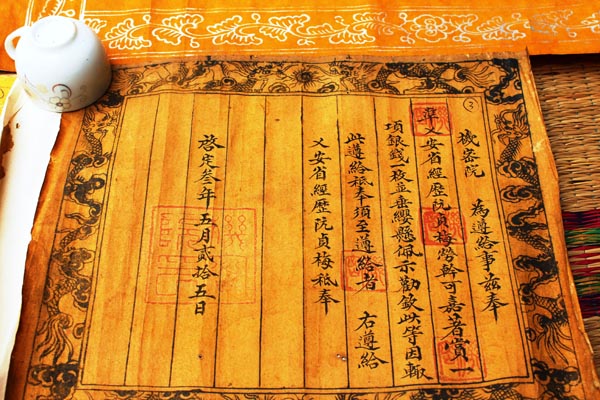 ③
機密院 為遵給事茲奉
準乂安省經歷阮貞梅勞幹可嘉著賞一
項銀錢一枚並垂纓懸佩示勸欽此等因輒
此遵給祗奉須至遵給者 右遵給
乂安省經歷阮貞梅祗奉
啓定叁年五月貳拾五日